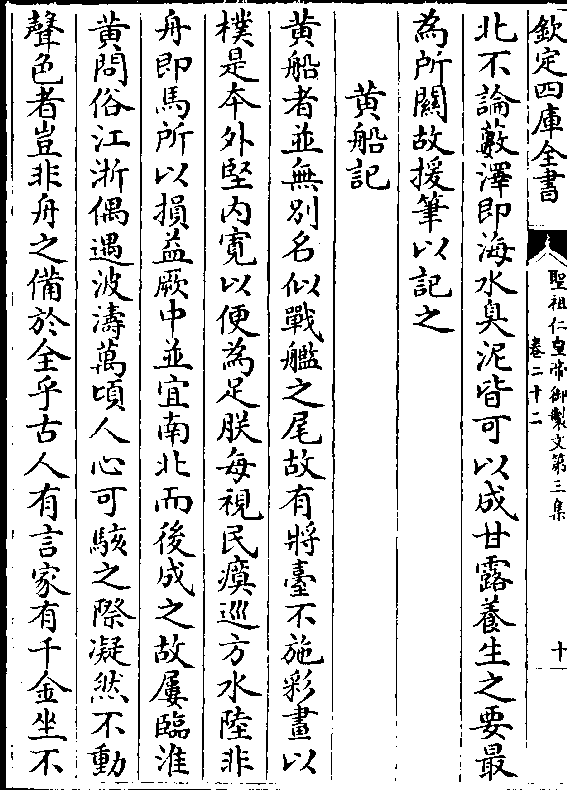 欽定四庫全書
聖祖仁皇帝御製文第三集
卷二十二
十
北不論藪澤即海水臭泥皆可以成甘露養生之要最
為所關故援筆以記之
黄船記
黄船者並無别名似戰艦之尾故有將臺不施彩畫以
樸是本外堅内寛以便為足朕每視民瘼巡方水陸非
舟即馬所以損益厥中並宜南北而後成之故屢臨淮
黄問俗江浙偶遇波濤萬頃人心可駭之際凝然不動
聲色者豈非舟之備於全乎古人有言家有千金坐不